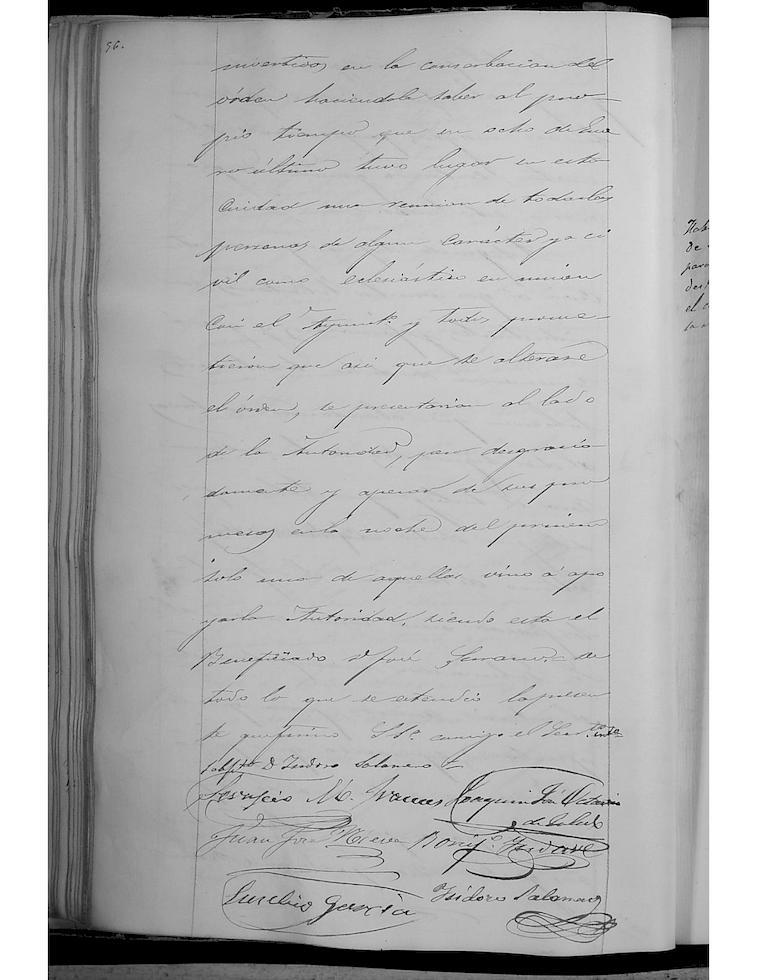 96.
invertidos en la conserbacion del
órden haciendole saber al pro-
pio tiempo que en ocho de Ene
ro último tuvo lugar en esta
Ciudad una reunion de todas las
personas de algun carácter ya ci
vil como eclesiástico en union
con el Ayunto. y todos prome-
tieron que asi que se alterase
el órden, se presentarian al lado
de la Autoridad, pero desgracia
damente y apesar de sus pro
mesas en la noche del primero
solo uno de aquellos vino á apo
yar la Autoridad, siendo este el
Beneficiado D José Serrano de
todo lo que se estendió la presen
te que firmo S.S.a conmigo el Secret.o inte
D Isidoro Salamero
M.
Joaquin
Juan José
Eusebio Garcia Isidoro Salamero